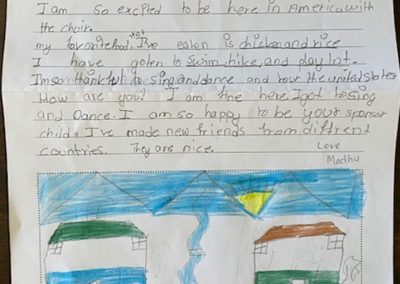 I am so excited to be here in America with
the choir.
my favorite food that I've eaten is chicken and rice
I have goten to swim, hike, and play lot.
I'm so thankful to sing and dance and tour the united states
How are you? I am fine here. I got to sing
and Dance. I am so happy to be your sponsor
child. I've made new friends from diffrent
countries. They are nice.
Love
Madhu